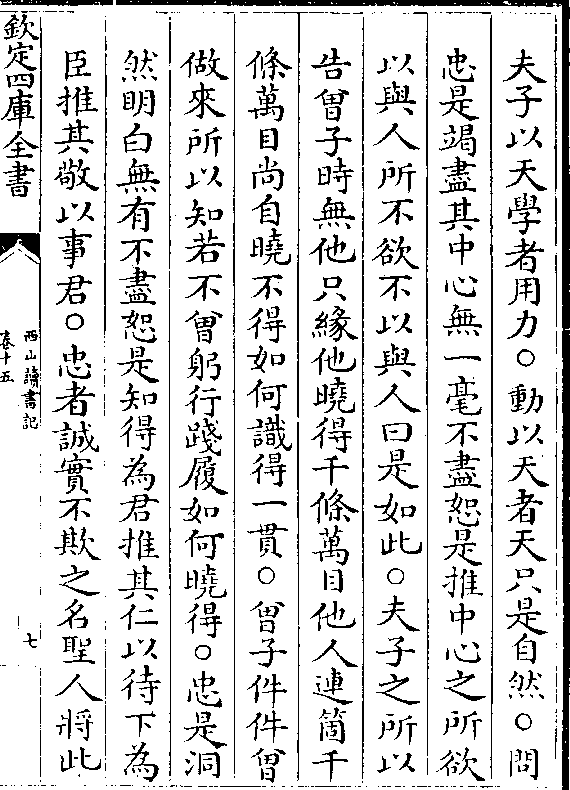 夫子以天學者用力○動以天者天只是自然○問
忠是竭盡其中心無一毫不盡恕是推中心之所欲
以與人所不欲不以與人曰是如此○夫子之所以
告曾子時無他只緣他曉得千條萬目他人連箇千
條萬目尚自曉不得如何識得一貫○曾子件件曾
做來所以知若不曾躬行踐履如何曉得○忠是洞
然明白無有不盡恕是知得為君推其仁以待下為
臣推其敬以事君○忠者誠實不欺之名聖人將此
欽定四庫全書
西山讀書記
卷十五
七